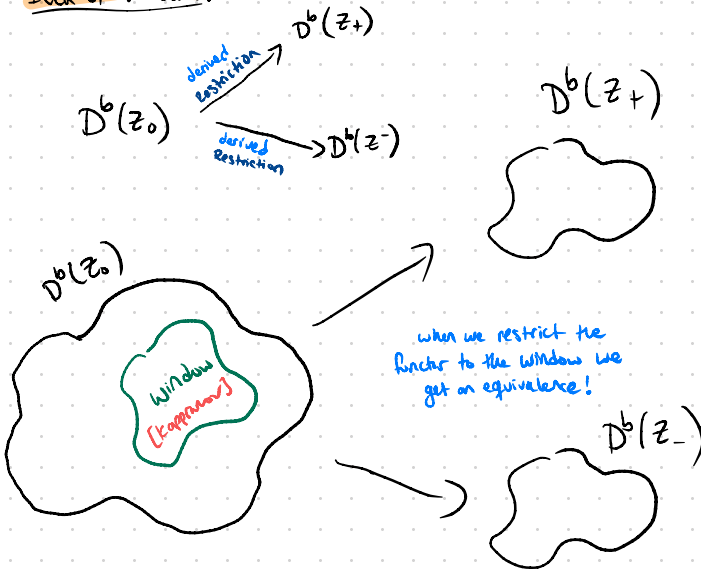 D^b(Z+)
derived
Restriction
D^b(Z₀)
D^b(Z-)
derived
Restriction
D^b(Z+)
D^b(Z₀)
window
when we restrict the
functor to the window we
get an equivalence!
D^b(Z_)